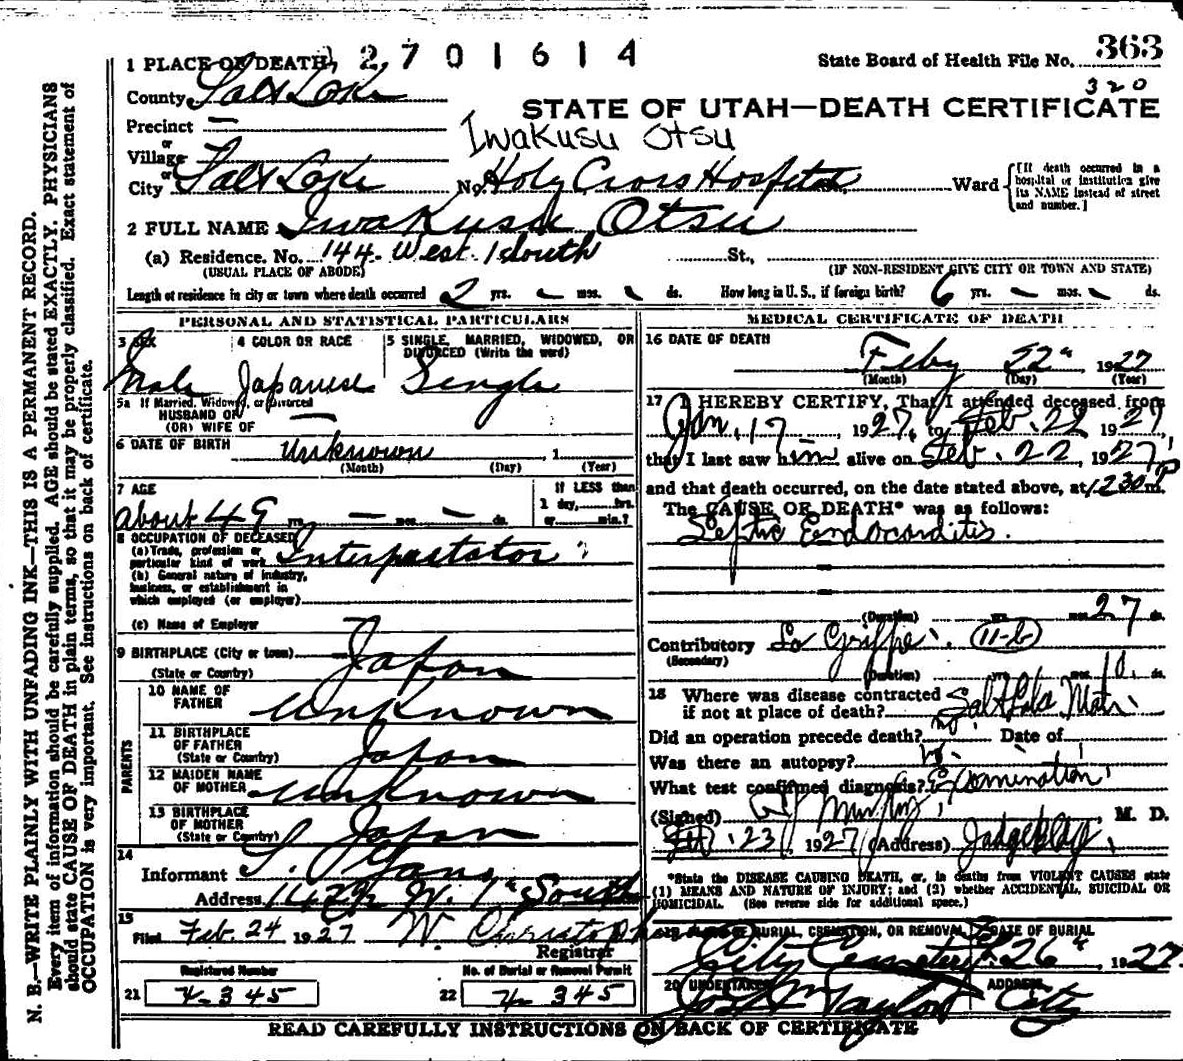 2701614
State Board of Health File No. 363
320
1 PLACE OF DEATH
County Salt Lake
STATE OF UTAH—DEATH CERTIFICATE
Precinct —
Iwakusu Otsu
or
Village
or
City Salt Lake No. Holy Cross Hospital Ward
[If death occurred in a hospital or institution give its NAME instead of street and number.]
2 FULL NAME Iwakusu Otsu
(a) Residence. No. 144 West 1 South St.,
(USUAL PLACE OF ABODE) (IF NON-RESIDENT GIVE CITY OR TOWN AND STATE)
Length of residence in city or town where death occurred 2 yrs. — mos. — ds. How long in U. S., if foreign birth? 6 yrs. — mos. — ds.
PERSONAL AND STATISTICAL PARTICULARS
3 SEX 4 COLOR OR RACE 5 SINGLE, MARRIED, WIDOWED, OR DIVORCED (Write the word)
Male Japanese Single
5a If Married, Widowed, or Divorced
HUSBAND OF
(OR) WIFE OF —
6 DATE OF BIRTH Unknown, 1
(Month) (Day) (Year)
7 AGE
If LESS than
1 day, hrs.
or min.?
about 49 yrs. — mos. — ds.
8 OCCUPATION OF DECEASED
(a) Trade, profession or
particular kind of work Interpretator
(b) General nature of industry,
business, or establishment in
which employed (or employer)
(c) Name of Employer
9 BIRTHPLACE (City or town)
(State or Country) Japan
PARENTS
10 NAME OF
FATHER Unknown
11 BIRTHPLACE
OF FATHER
(State or Country) Japan
12 MAIDEN NAME
OF MOTHER Unknown
13 BIRTHPLACE
OF MOTHER
(State or Country) Japan
14
Informant
Address W. 1st South
15
Filed Feb. 24 1927 W. Christopher
Registrar
Registered Number No. of Burial or Removal Permit
21 22
MEDICAL CERTIFICATE OF DEATH
16 DATE OF DEATH
Feby 22" 1927
(Month) (Day) (Year)
17 I HEREBY CERTIFY, That I attended deceased from
Jan. 17 — 1927, to Feb. 22 1927
that I last saw him alive on Feb. 22, 1927,
and that death occurred, on the date stated above, at 1230 P m.
The CAUSE OF DEATH* was as follows:
Septic Endocarditis.
(Duration) yrs. mos. 27 ds.
Contributory La Grippe. (11-b)
(Secondary)
(Duration) yrs. mos. 10 ds.
18 Where was disease contracted
if not at place of death? Salt Lake
Did an operation precede death? no. Date of
Was there an autopsy? no.
What test confirmed diagnosis? Examination
(Signed) M. D.
Feb. 23, 1927 (Address) Judge Bldg.
*State the DISEASE CAUSING DEATH, or, in deaths from VIOLENT CAUSES state
(1) MEANS AND NATURE OF INJURY; and (2) whether ACCIDENTAL, SUICIDAL OR
HOMICIDAL. (See reverse side for additional space.)
19 PLACE OF BURIAL, CREMATION, OR REMOVAL DATE OF BURIAL
City Cemetery 26" 1927
20 UNDERTAKER ADDRESS
Taylor City
READ CAREFULLY INSTRUCTIONS ON BACK OF CERTIFICATE
N. B.—WRITE PLAINLY WITH UNFADING INK—THIS IS A PERMANENT RECORD.
Every item of information should be carefully supplied. AGE should be stated EXACTLY. PHYSICIANS
should state CAUSE OF DEATH in plain terms, so that it may be properly classified. Exact statement of
OCCUPATION is very important. See instructions on back of certificate.